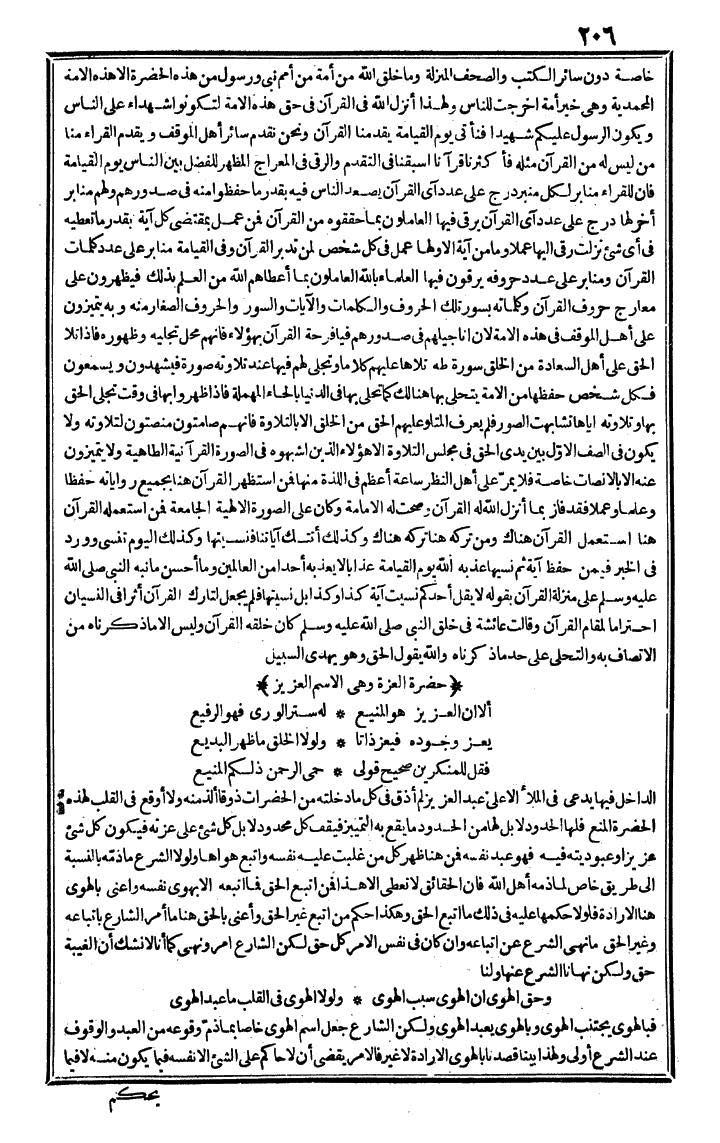 ٢٠٦
خاصة دون سائر الكتب والصحف المنزلة وما خلق الله من أمة من أمم نبي ورسول من هذه الحضرة الا هذه الامة
المحمدية وهى خير أمة اخرجت للناس ولهذا أنزل الله فى القرآن فى حق هذه الامة لتكونوا شهداء على الناس
ويكون الرسول عليكم شهيدا فنأتى يوم القيامة يقدمنا القرآن ونحن نقدم سائر أهل الموقف ويقدم القراء منا
من ليس له من القرآن مثله فأكثرنا قرآنا اسبقنا فى التقدم والرقى فى المعراج المظهر للفضل بين الناس يوم القيامة
فان للقراء منابر لكل منبر درج على عدد آى القرآن يصعد الناس فيه بقدر ما حفظوا منه فى صدورهم ولهم منابر
أخر لها درج على عدد آى القرآن يرقى فيها العاملون بما حققوه من القرآن فمن عمل بمقتضى كل آية بقدر ما تعطيه
فى أى شئ نزلت رقى اليها عملا وما من آية الا ولها عمل فى كل شخص لمن تدبر القرآن وفى القيامة منابر على عدد كلمات
القرآن ومنابر على عدد حروفه يرقون فيها العلماء بالله العاملون بما أعطاهم الله من العلم بذلك فيظهرون على
معارج حروف القرآن وكلماته بسور تلك الحروف والكلمات والآيات والسور والحروف الصغار منه وبه يتميزون
على أهل الموقف فى هذه الامة لان اناجيلهم فى صدورهم فيافرحة القرآن بهؤلاء فانهم محل تجليه وظهوره فاذا تلا
الحق على أهل السعادة من الخلق سورة طه تلاها عليهم كلاما وتجلى لهم فيها عند تلاوته صورة فيشهدون ويسمعون
فكل شخص حفظها من الامة يتحلى بها هنالك كما تحلى بها فى الدنيا بالحاء المهملة فاذا ظهروا بها فى وقت تجلى الحق
بها وتلاوته اياها تشابهت الصور فلم يعرف المتلو عليهم الحق من الخلق الا بالتلاوة فانهم صامتون منصتون لتلاوته ولا
يكون فى الصف الاول بين يدى الحق فى مجلس التلاوة الا هؤلاء الذين اشبهوه فى الصورة القرآنية الطاهية ولا يتميزون
عنه الا بالانصات خاصة فلا يمر على أهل النظر ساعة أعظم فى اللذة منها فمن استظهر القرآن هنا بجميع رواياته حفظا
وعلما وعملا فقد فاز بما أنزل الله له القرآن وصحت له الامامة وكان على الصورة الالهية الجامعة فمن استعمله القرآن
هنا استعمل القرآن هناك ومن تركه هنا تركه هناك وكذلك أتتك آياتنا فنسيتها وكذلك اليوم تنسى وورد
فى الخبر فيمن حفظ آية ثم نسيها عذبه الله يوم القيامة عذابا لا يعذبه أحدا من العالمين وما أحسن ما نبه النبى صلى الله
عليه وسلم على منزلة القرآن بقوله لا يقل أحدكم نسيت آية كذا وكذا بل نسيتها فلم يجعل لتارك القرآن أثرا فى النسيان
احتراما لمقام القرآن وقالت عائشة فى خلق النبى صلى الله عليه وسلم كان خلقه القرآن وليس الا ما ذكرناه من
الاتصاف به والتحلى على حد ما ذكرناه والله يقول الحق وهو يهدى السبيل
﴿حضرة العزة وهى الاسم العزيز﴾
ألا ان العزيز هو المنيع * له ستر الورى فهو الرفيع
يعز وجوده فيعز ذاتا * ولولا الخلق ما ظهر البديع
فقل للمنكرين صحيح قولى * حمى الرحمن ذلكم المنيع
الداخل فيها يدعى فى الملأ الاعلى عبد العزيز لم أذق فى كل ما دخلته من الحضرات ذوقا ألذ منه ولا أوقع فى القلب لهذه
الحضرة المنع فلها الحدود لا بل لها من الحدود ما يقع به التمييز فيقف كل محدود لا بل كل شئ على عزته فيكون كل شئ
عزيزا وعبوديته فيه فهو عبد نفسه فمن هنا ظهر كل من غلبت عليه نفسه واتبع هواها ولولا الشرع ما ذمه بالنسبة
الى طريق خاص لما ذمه أهل الله فان الحقائق لا تعطى الا هذا فمن اتبع الحق فما اتبعه الا بهوى نفسه وأعنى بالهوى
هنا الارادة فلولا حكمها عليه فى ذلك ما اتبع الحق وهكذا حكم من اتبع غير الحق وأعنى بالحق هنا ما أمر الشارع باتباعه
وغير الحق ما نهى الشرع عن اتباعه وان كان فى نفس الامر كل حق لكن الشارع امر ونهى كما أنا لا نشك أن الغيبة
حق ولكن نهانا الشرع عنها ولنا
وحق الهوى ان الهوى سبب الهوى * ولولا الهوى فى القلب ما عبد الهوى
فبالهوى يجتنب الهوى وبالهوى يعبد الهوى ولكن الشارع جعل اسم الهوى خاصا بما ذم وقوعه من العبد والوقوف
عند الشرع أولى ولهذا بينا قصدنا بالهوى الارادة لا غير فالامر يقضى أن لا حاكم على الشئ الا نفسه فيما يكون منه لا فيما
يحكم